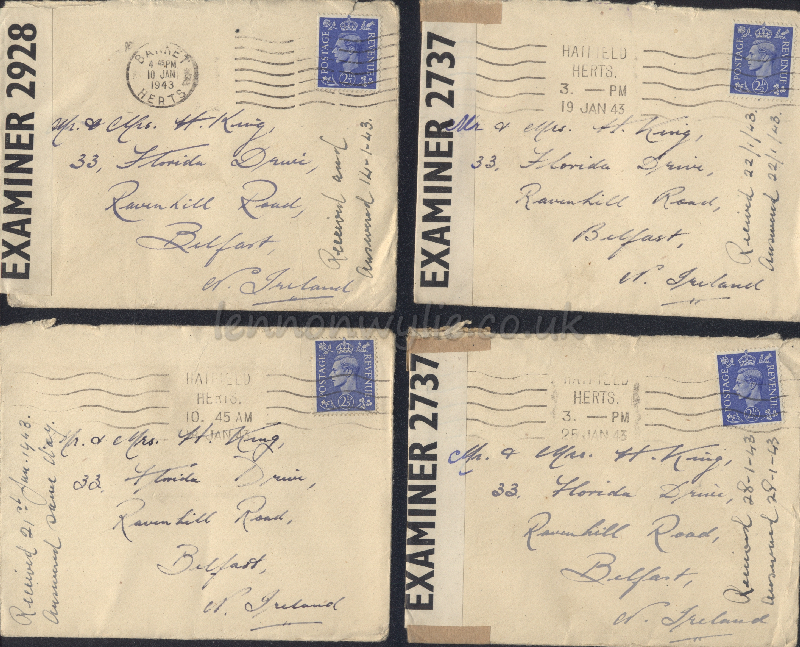 EXAMINER 2928
BARNET
4 45 PM
10 JAN
1943
HERTS.
POSTAGE
REVENUE
2½
Mr. & Mrs. H. King,
33, Florida Drive,
Ravenhill Road,
Belfast,
N. Ireland
Received and
Answered 14-1-43.
EXAMINER 2737
HATFIELD
HERTS.
3. — PM
19 JAN 43
POSTAGE
REVENUE
2½
Mr & Mrs. H. King,
33, Florida Drive,
Ravenhill Road,
Belfast,
N. Ireland
Received 22/1/43.
Answered 22/1/43.
lennonwylie.co.uk
HATFIELD
HERTS.
10. 45 AM
JAN 43
POSTAGE
REVENUE
2½
Mr. & Mrs. H. King,
33, Florida Drive,
Ravenhill Road,
Belfast,
N. Ireland
Received 21st Jan. 1943.
Answered same day.
EXAMINER 2737
HATFIELD
HERTS.
3. — PM
25 JAN 43
POSTAGE
REVENUE
2½
Mr. & Mrs. H. King,
33, Florida Drive,
Ravenhill Road,
Belfast,
N. Ireland
Received 28-1-43
Answered 29-1-43